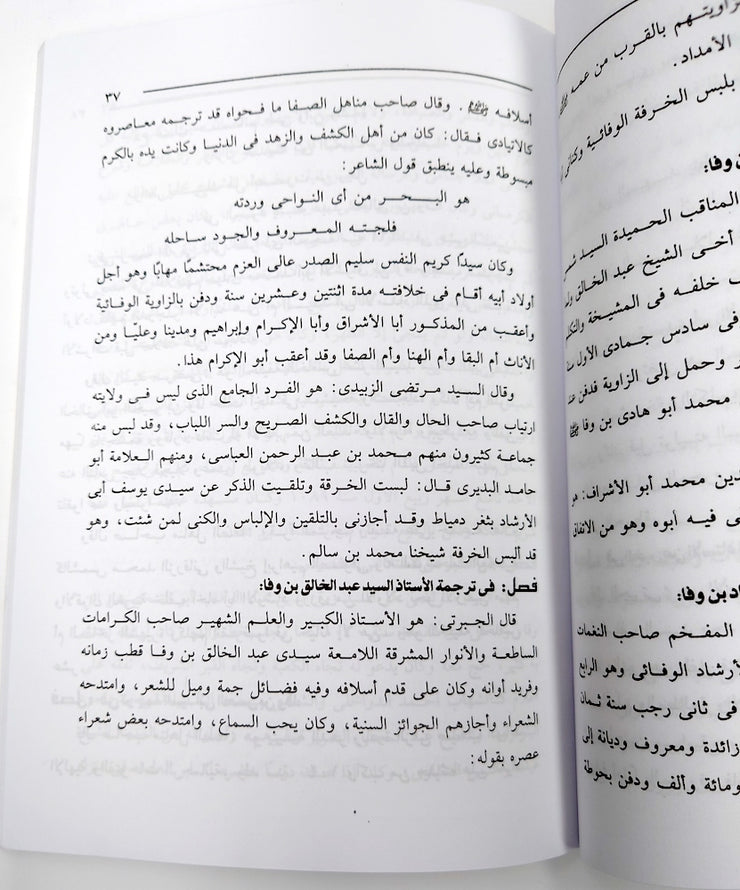 ٣٧
أسلافه ﷺ. وقال صاحب مناهل الصفا ما فحواه قد ترجمه معاصروه
كالاتيادى فقال: كان من أهل الكشف والزهد فى الدنيا وكانت يده بالكرم
مبسوطة وعليه ينطبق قول الشاعر:
هو البـــحـــر من أى النواحى وردته
فلجتـه المعـــروف والجود ساحله
وكان سيدًا كريم النفس سليم الصدر عالى العزم محتشمًا مهابًا وهو أجل
أولاد أبيه أقام فى خلافته مدة اثنتين وعشرين سنة ودفن بالزاوية الوفائية
وأعقب من المذكور أبا الأشراق وأبا الإكرام وإبراهيم ومدينا وعليًا ومن
الأناث أم البقا وأم الهنا وأم الصفا وقد أعقب أبو الإكرام هذا.
وقال السيد مرتضى الزبيدى: هو الفرد الجامع الذى ليس فى ولايته
ارتياب صاحب الحال والقال والكشف الصريح والسر اللباب، وقد لبس منه
جماعة كثيرون منهم محمد بن عبد الرحمن العباسى، ومنهم العلامة أبو
حامد البديرى قال: لبست الخرقة وتلقيت الذكر عن سيدى يوسف أبى
الأرشاد بثغر دمياط وقد أجازنى بالتلقين والإلباس والكنى لمن شئت، وهو
قد ألبس الخرفة شيخنا محمد بن سالم.
فصل: فى ترجمة الأستاذ السيد عبد الخالق بن وفا:
قال الجبرتى: هو الأستاذ الكبير والعلم الشهير صاحب الكرامات
الساطعة والأنوار المشرقة اللامعة سيدى عبد الخالق بن وفا قطب زمانه
وفريد أوانه وكان على قدم أسلافه وفيه فضائل جمة وميل للشعر، وامتدحه
الشعراء وأجازهم الجوائز السنية، وكان يحب السماع، وامتدحه بعض شعراء
عصره بقوله:
زاويتهم بالقرب من عمه
الأمداد.
بلبس الخرفة الوفائية وكنانى
بن وفا:
المناقب الحميدة السيد شمس
أخى الشيخ عبد الخالق
خلفه فى المشيخة
فى سادس جمادى الأول
وحمل إلى الزاوية فدفن
محمد أبو هادى بن وفا
الدين محمد أبو الأشراف: هو
فيه أبوه وهو من الاتفاق
بن وفا:
المفخم صاحب النغمات
الأرشاد الوفائى وهو الرابع
فى ثانى رجب سنة ثمان
زائدة ومعروف وديانة إلى
ومائة وألف ودفن بحوطة